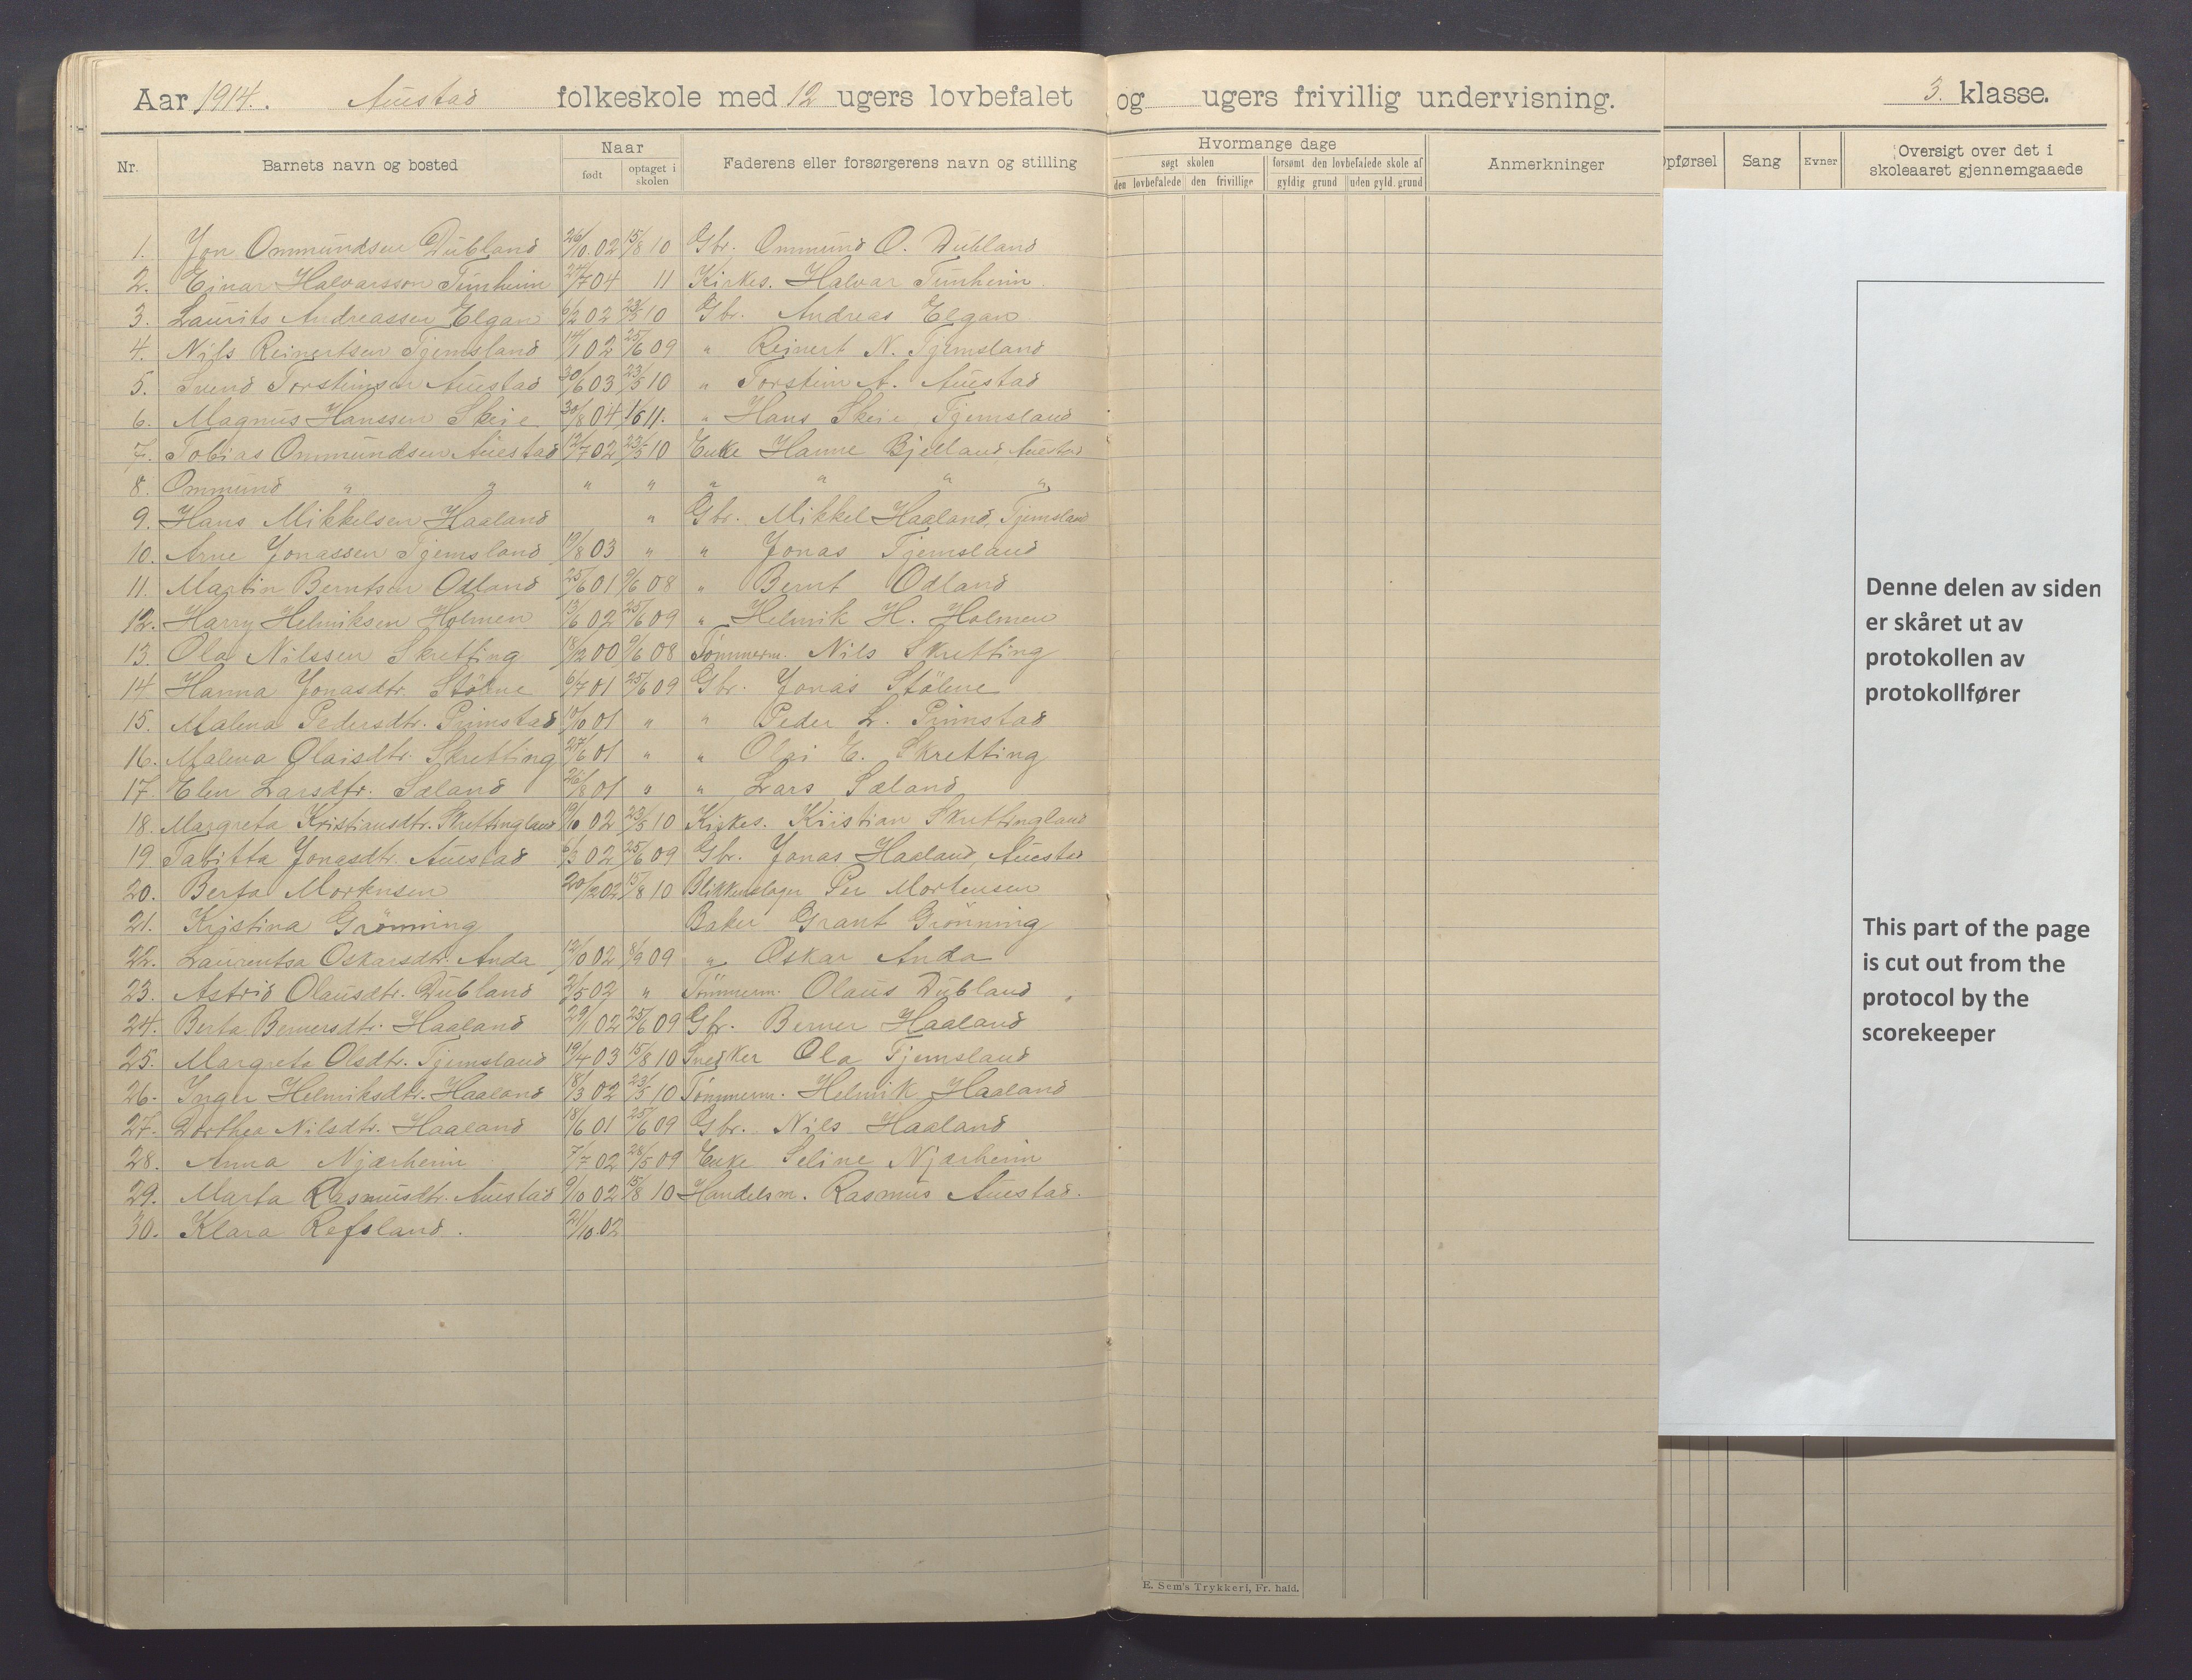 Aar 1914. Auestad folkeskole med 12 ugers lovbefalet og ugers frivillig undervisning. 3. klasse.
Nr. Barnets navn og bosted Naar født optaget i skolen Faderens eller forsørgerens navn og stilling
Hvormange dage søgt skolen den lovbefalede den frivillige forsømt den lovbefalede skole af gyldig grund uden gyld. grund Anmerkninger
Opførsel Sang Evner Oversigt over det i skoleaaret gjennemgaaede
1. Jon Ommundsen Dubland 26/10 02 15/8 10 Gbr. Ommund O. Dubland
2. Einar Halvarsson Tunheim 24/7 04 11 Kirkes. Halvar Tunheim
3. Laurits Andreassen Elgan 6/2 02 23/5 10 Gbr. Andreas Elgan
4. Nils Reinertsen Tjemsland 14/1 02 25/6 09 " Reinert N. Tjemsland
5. Svend Torsteinsen Auestad 30/6 03 23/5 10 " Torstein A. Auestad
6. Magnus Hanssen Skeie 30/8 04 11. " Hans Skeie Tjemsland
7. Tobias Ommundsen Auestad 12/7 02 23/5 10 Enke Hanne Bjelland, Auestad
8. Ommund " " " " " " " "
9. Hans Mikkelsen Haaland " Gbr. Mikkel Haaland, Tjemsland
10. Arne Jonassen Tjemsland 19/8 03 " " Jonas Tjemsland
11. Martin Berntsen Odland 25/6 01 9/6 08 " Bernt Odland
12. Harry Helmiksen Holmen 13/6 02 25/6 09 " Helmik H. Holmen
13. Ola Nilssen Skretting 18/12 00 9/6 08 Tømmerm. Nils Skretting
14. Hanna Jonasdtr. Stölne 6/7 01 25/6 09 Gbr. Jonas Stölne
15. Malena Pedersdtr. Primstad 10/10 01 " " Peder L. Primstad
16. Malena Olaisdtr. Skretting 27/6 01 " " Olai E. Skretting
17. Elen Larsdtr. Sæland 26/8 01 " " Lars Sæland
18. Margreta Kristiansdtr. Skrettingland 19/10 02 23/5 10 Kirkes. Kristian Skrettingland
19. Tabitta Jonasdtr. Auestad 5/3 02 25/6 09 Gbr. Jonas Haaland, Auestad
20. Berta Mortensen 20/12 02 15/8 10 Blikkenslager Per Mortensen
21. Kristina Grönning Baker Grant Grönning
22. Laurentsa Oskarsdtr. Anda 12/10 02 8/9 09 " Oskar Anda
23. Astrid Olausdtr. Dubland 2/5 02 " Tömmerm. Olaus Dubland
24. Berta Bernersdtr. Haaland 29/1 02 25/6 09 Gbr. Berner Haaland
25. Margreta Olsdtr. Tjemsland 19/4 03 15/8 10 Snedker Ola Tjemsland
26. Inger Helmiksdtr. Haaland 18/3 02 23/5 10 Tømmerm. Helmik Haaland
27. Dorthea Nilsdtr. Haaland 18/6 01 25/6 09 Gbr. Nils Haaland
28. Anna Njærheim 7/7 02 28/5 09 Enke Seline Njærheim
29. Marta Rasmusdtr. Auestad 9/10 02 15/8 10 Handelsm. Rasmus Auestad.
30. Klara Refsland. 21/10.02
E. Sem's Trykkeri, Fr. hald.
Denne delen av siden
er skåret ut av
protokollen av
protokollfører
This part of the page
is cut out from the
protocol by the
scorekeeper